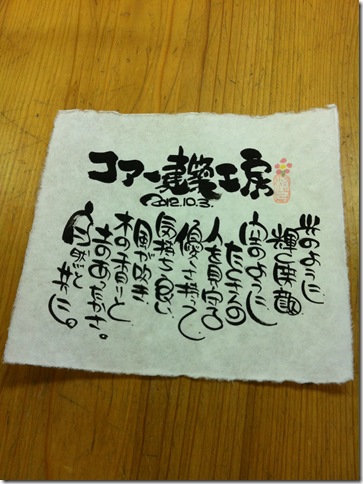 コアー建築工房
2012.10.3.
光のように
輝く笑顔
空のように
たくさんの
人を見守る
優しさ持って
気持ち良い
風が吹き
木の香りと
木のあたたかさ。
家族と共に。